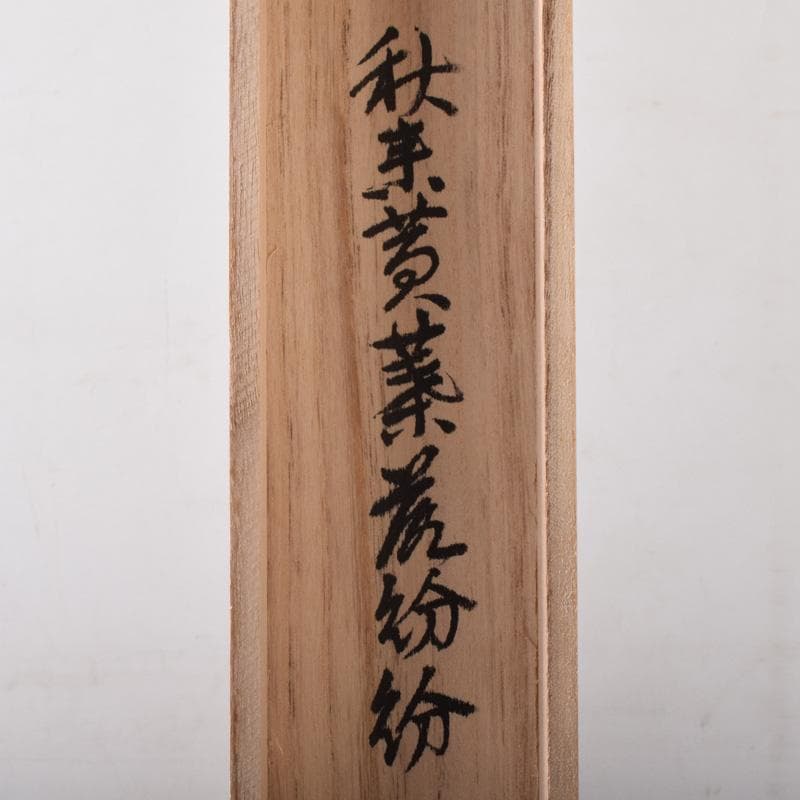 秋来黄葉落紛紛